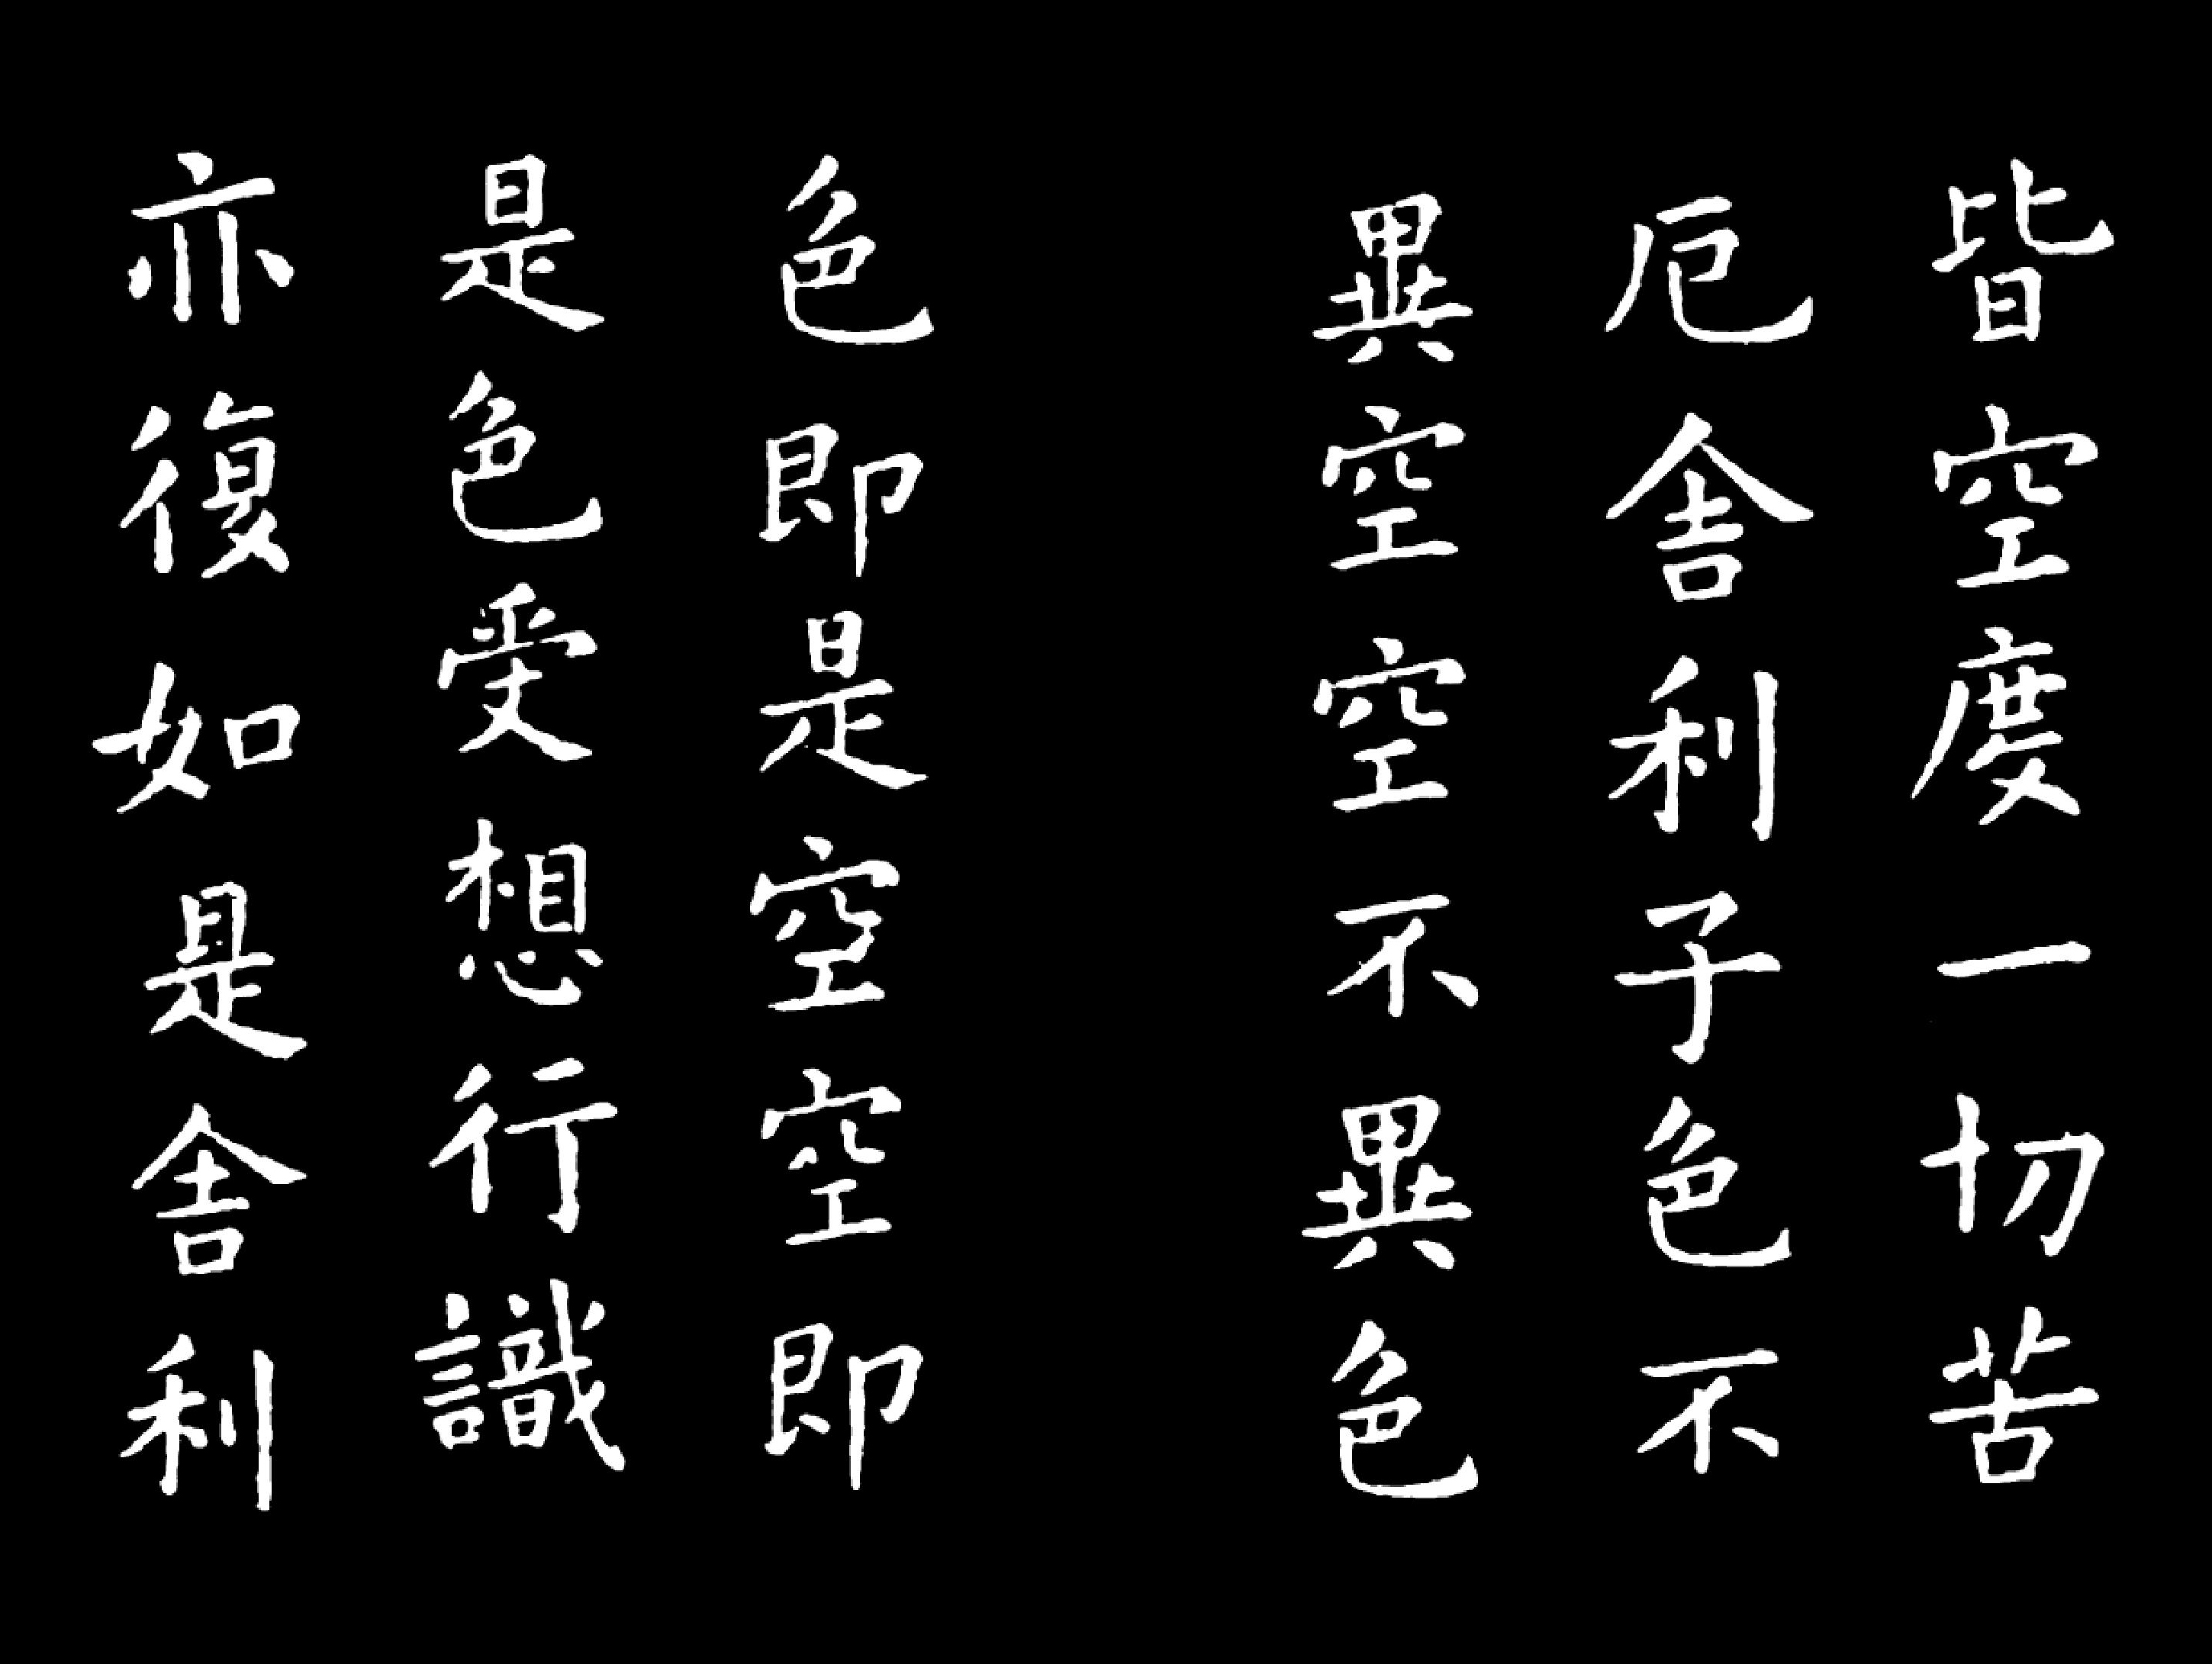 皆空度一切苦
厄舎利子色不
異空空不異色
色即是空空即
是色受想行識
亦復如是舎利